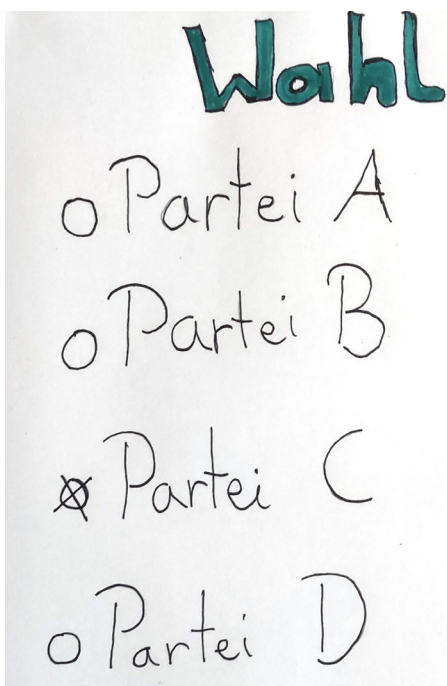 Wahl
Partei A
Partei B
Partei C
Partei D